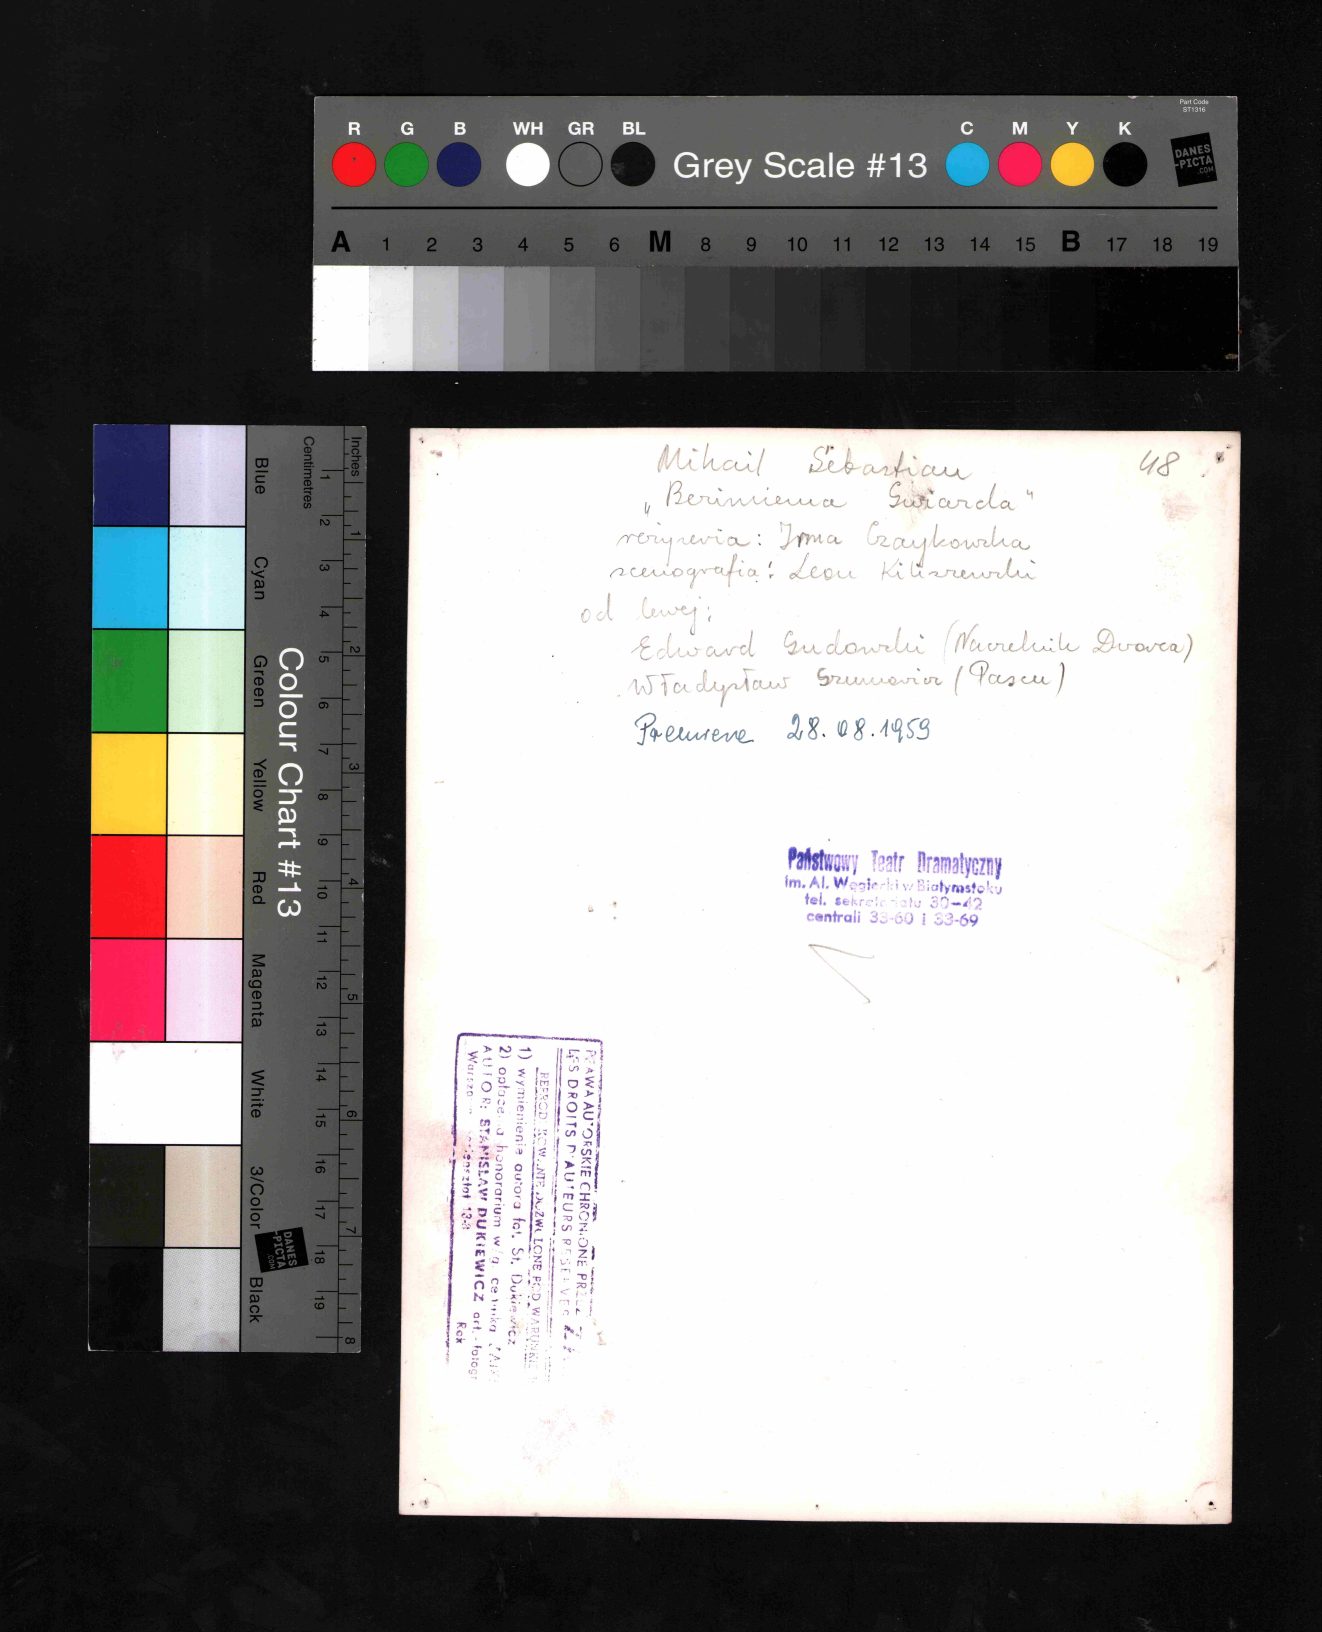 Part Code
ST1316
R G B WH GR BL Grey Scale #13 C M Y K
DANES
-PICTA
.COM
A 1 2 3 4 5 6 M 8 9 10 11 12 13 14 15 B 17 18 19
Inches
Centimetres
1 2 3 4 5 6 7 8 9 10 11 12 13 14 15 16 17 18 19
1 2 3 4 5 6 7 8
Colour Chart #13
Blue
Cyan
Green
Yellow
Red
Magenta
White
3/Color
Black
DANES
-PICTA
.COM
48
Mihail Sebastian
„Bezimienna Gwiazda"
reżyseria: Irma Czaykowska
scenografia: Leon Kiliszewski
od lewej:
Edward Gudowski (Naczelnik Dworca)
Władysław Szumowicz (Pascu)
Premiera 28.08.1959
Państwowy Teatr Dramatyczny
im. Al. Węgierki w Białymstoku
tel. sekretariatu 30-42
centrali 33-60 i 33-69
PRAWA AUTORSKIE CHRONIONE PRZEZ
LES DROITS D'AUTEURS RESERVES
REPRODUKOWANIE DOZWOLONE POD WARUNKIEM
1) wymienienia autora fot. St. Dukiewicz
2) opłacenia honorarium wg. cennika
AUTOR: STANISŁAW DUKIEWICZ art. fotogr